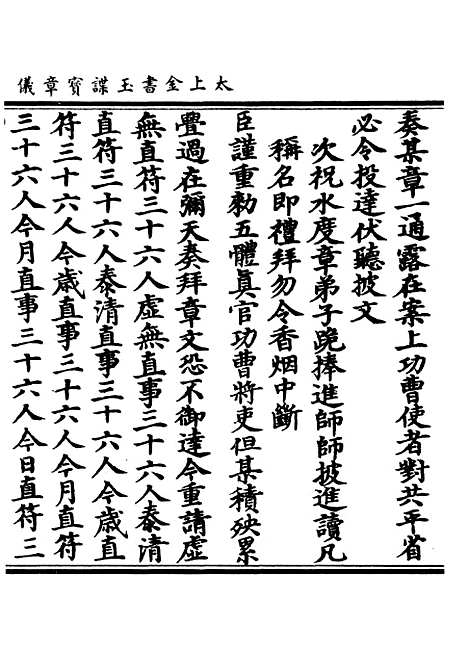 太上金書玉諜寶章儀
奏某章一通露在案上功曹使者對共平省
必令投達伏聽披文
次祝水度章弟子跪捧進師師披進讀凡
稱名即禮拜勿令香烟中斷
臣謹重勑五體真官功曹將吏但某積殃累
疊過在彌天奏拜章文恐不御達今重請虛
無直符三十六人虛無直事三十六人泰清
直符三十六人泰清直事三十六人今歲直
符三十六人今歲直事三十六人今月直符
三十六人今月直事三十六人今日直符三